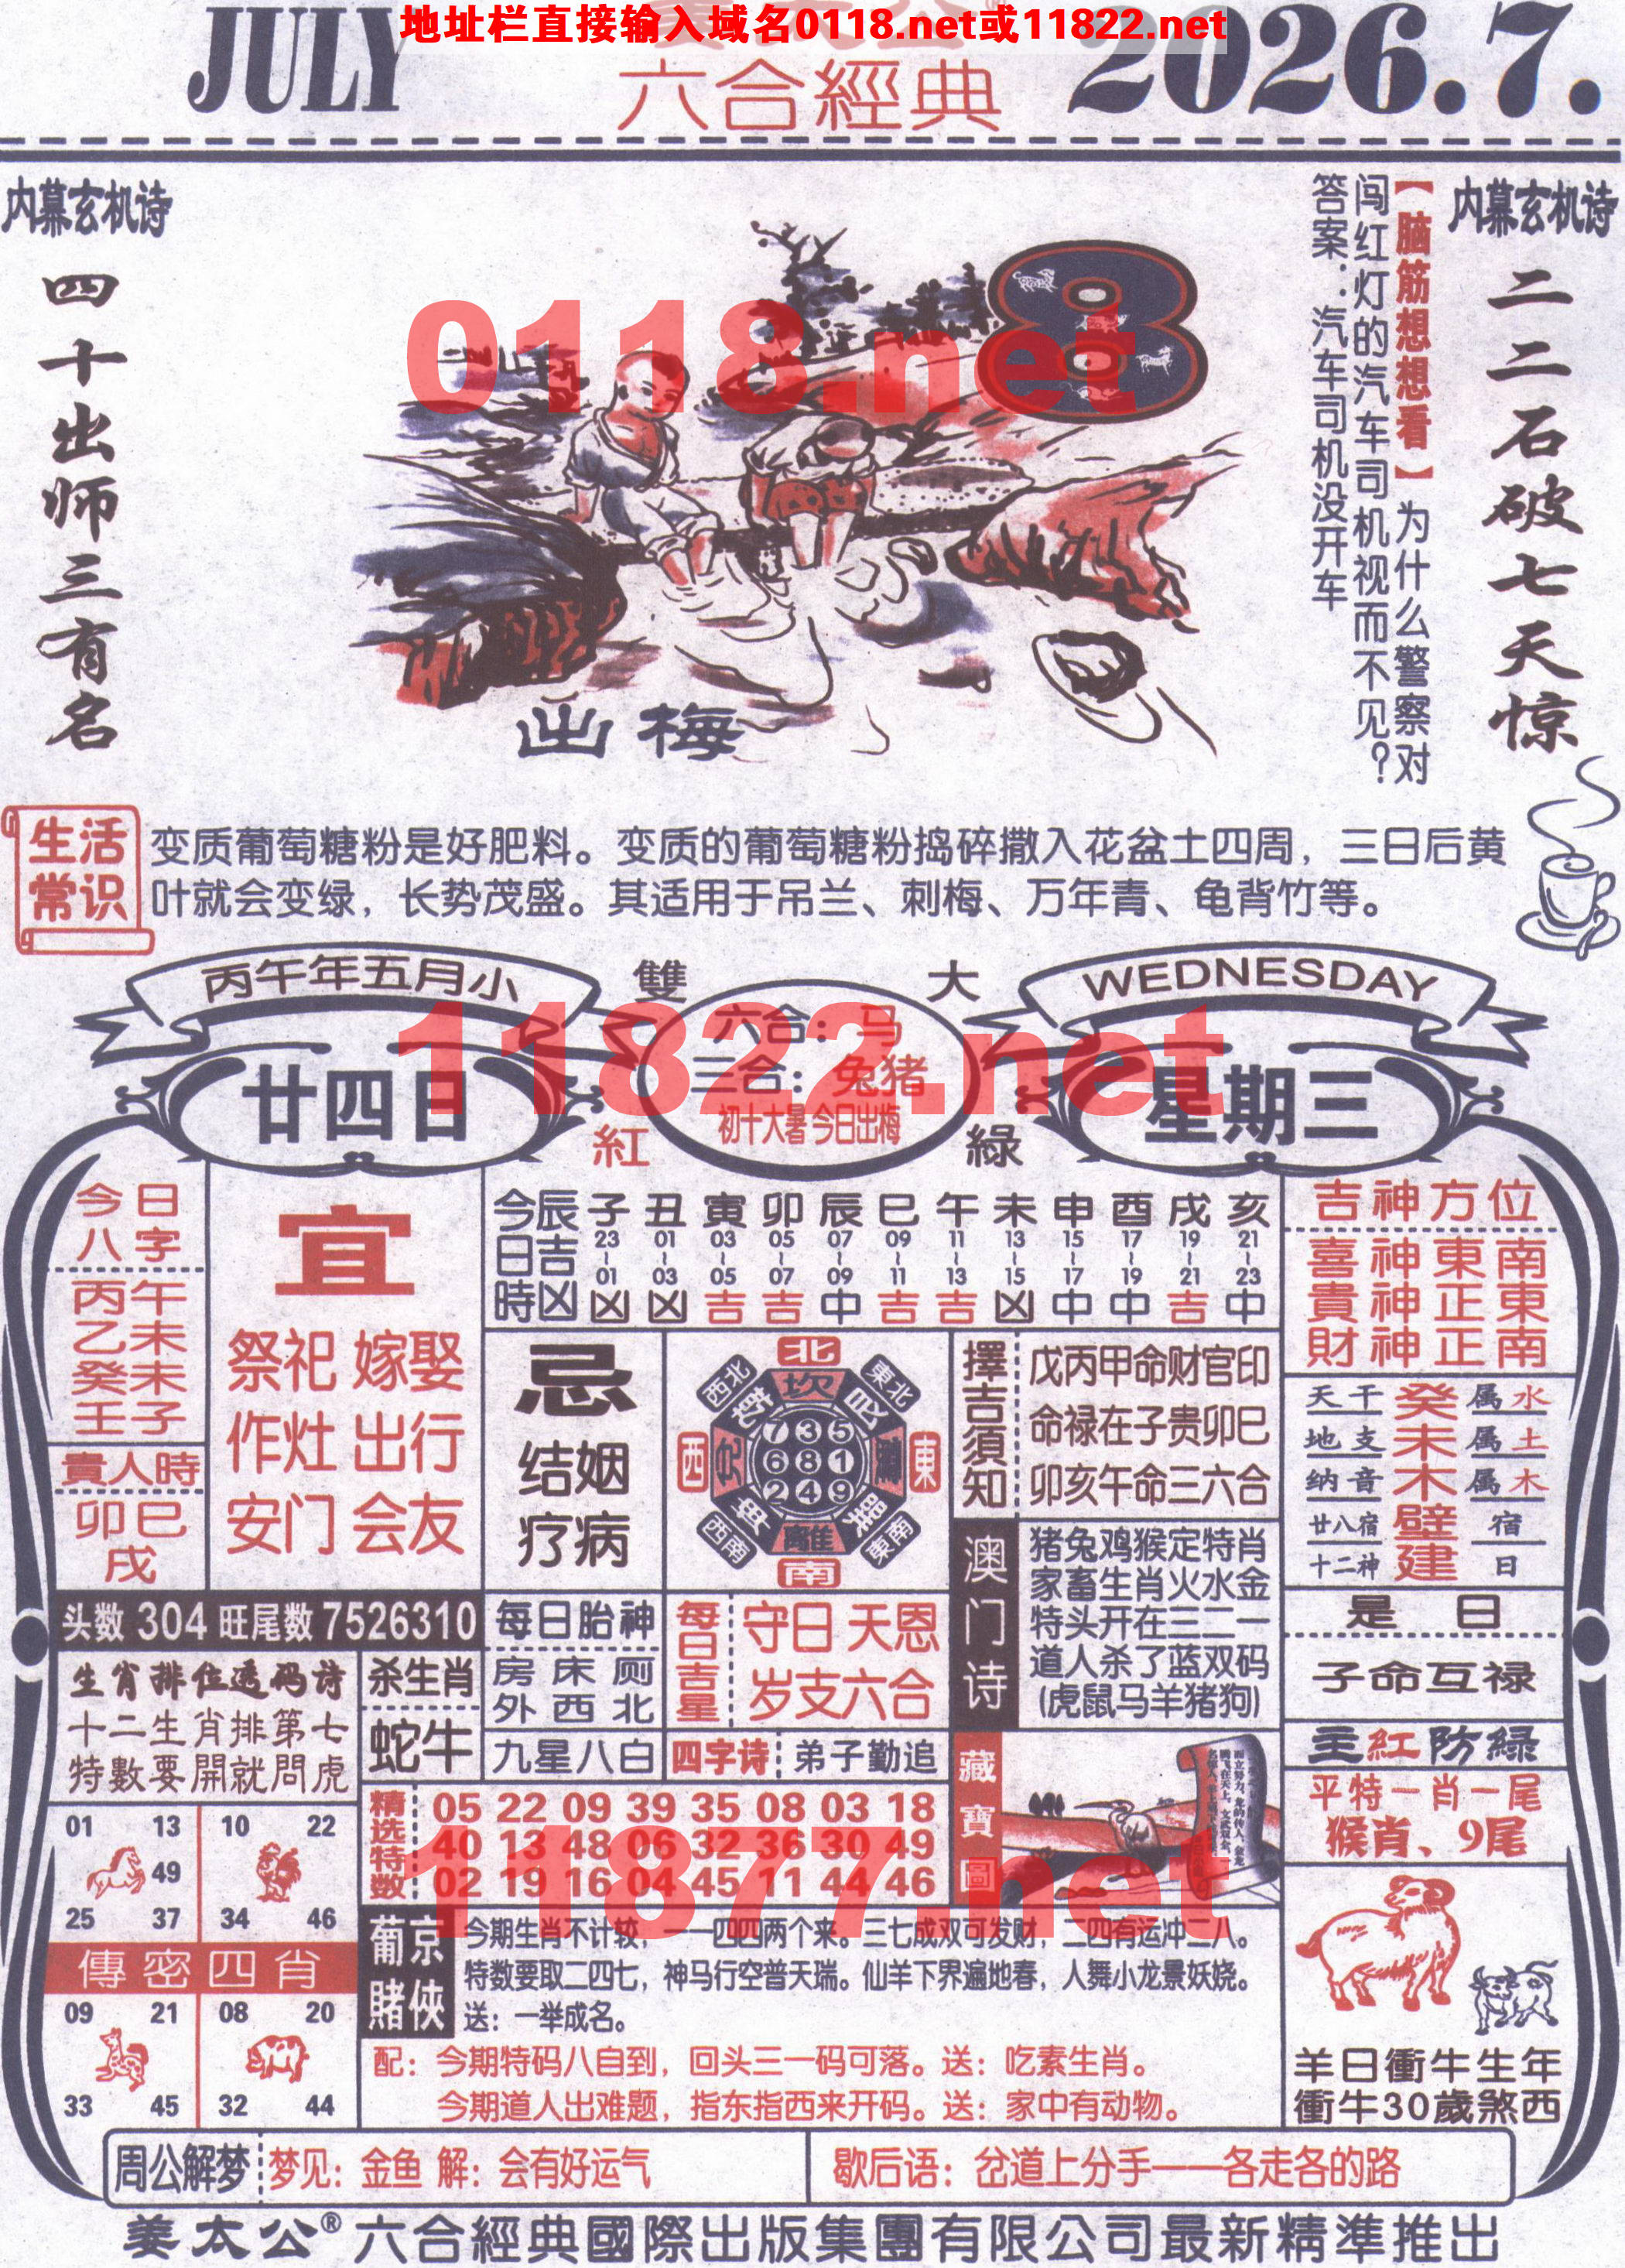 地址栏直接输入域名0118.net或11822.net
JULY
六合經典
2026.7.
内幕玄机诗
四十出师三有名
8
出梅
【脑筋想想看】为什么警察对
闯红灯的汽车司机视而不见?
答案:汽车司机没开车
内幕玄机诗
二二石破七天惊
0118.net
生活
常识
变质葡萄糖粉是好肥料。变质的葡萄糖粉捣碎撒入花盆土四周，三日后黄
叶就会变绿，长势茂盛。其适用于吊兰、刺梅、万年青、龟背竹等。
丙午年五月小
廿四日
雙
大
紅
綠
六合：马
三合：兔猪
初十大暑 今日出梅
WEDNESDAY
星期三
11822.net
今日
八字
丙午
乙未
癸未
壬子
貴人時
卯巳
戌
宜
祭祀 嫁娶
作灶 出行
安门 会友
今日時 辰吉凶
子 丑 寅 卯 辰 巳 午 未 申 酉 戌 亥
23~01 01~03 03~05 05~07 07~09 09~11 11~13 13~15 15~17 17~19 19~21 21~23
凶 凶 吉 吉 中 吉 吉 凶 中 中 吉 中
忌
结姻
疗病
北
西北
坎
東北
乾
艮
西
兌
東
735
681
249
西南
離
東南
南
擇吉須知
戊丙甲命财官印
命禄在子贵卯巳
卯亥午命三六合
吉神方位
喜神東南
貴神正東
財神正南
天干 癸 属水
地支 未 属土
纳音 木 属木
廿八宿 壁 宿
十二神 建 日
是日
子命互禄
主紅防綠
平特一肖一尾
猴肖、9尾
澳门诗
猪兔鸡猴定特肖
家畜生肖火水金
特头开在三二一
道人杀了蓝双码
(虎鼠马羊猪狗)
头数 304 旺尾数 7526310
每日胎神
房床厕
外西北
九星八白
每日吉星
守日 天恩
岁支六合
四字诗
弟子勤追
生肖排位透码诗
十二生肖排第七
特數要開就問虎
杀生肖
蛇牛
藏寶圖
精选特数
05 22 09 39 35 08 03 18
40 13 48 06 32 36 30 49
02 19 16 04 45 11 44 46
11877.net
01 13
49
25 37
10 22
34 46
傳密四肖
09 21
33 45
08 20
32 44
葡京
賭俠
今期生肖不计较，一一四四两个来。三七成双可发财，二四有运冲二八。
特数要取二四七，神马行空普天瑞。仙羊下界遍地春，人舞小龙景妖娆。
送：一举成名。
配：今期特码八自到，回头三一码可落。送：吃素生肖。
今期道人出难题，指东指西来开码。送：家中有动物。
羊日衝牛生年
衝牛30歲煞西
周公解梦
梦见：金鱼 解：会有好运气
歇后语：岔道上分手——各走各的路
姜太公®六合經典國際出版集團有限公司最新精準推出